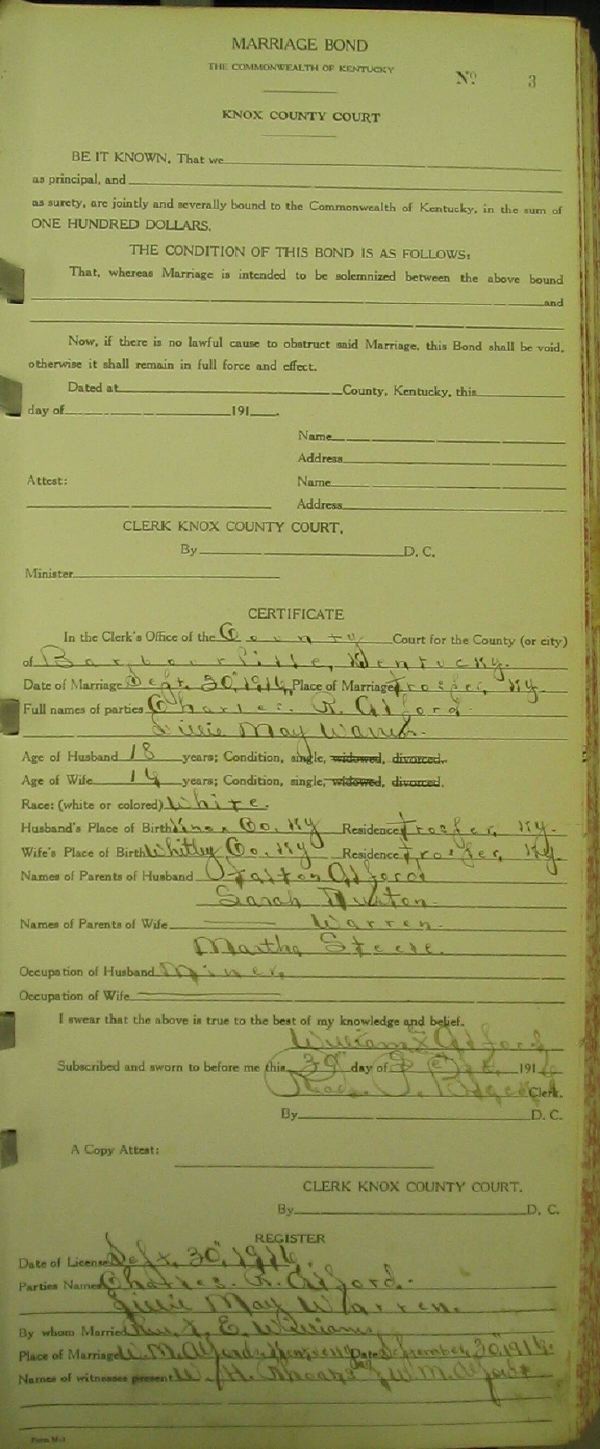 MARRIAGE BOND
THE COMMONWEALTH OF KENTUCKY
No 3
KNOX COUNTY COURT
BE IT KNOWN, That we
as principal, and
as surety, are jointly and severally bound to the Commonwealth of Kentucky, in the sum of
ONE HUNDRED DOLLARS.
THE CONDITION OF THIS BOND IS AS FOLLOWS:
That, whereas Marriage is intended to be solemnized between the above bound
and
Now, if there is no lawful cause to obstruct said Marriage, this Bond shall be void,
otherwise it shall remain in full force and effect.
Dated at County, Kentucky, this
day of 191 .
Name
Address
Attest: Name
Address
CLERK KNOX COUNTY COURT.
By D. C.
Minister
CERTIFICATE
In the Clerk's Office of the County Court for the County (or city)
of Barbourville, Kentucky.
Date of Marriage Sept. 30, 1916, Place of Marriage Trosper, Ky.
Full names of parties Charles. R. Alford.
Lillie May Warren.
Age of Husband 18 years; Condition, single, widowed, divorced.
Age of Wife years; Condition, single, widowed, divorced.
Race: (white or colored) White.
Husband's Place of Birth Knox Co. Ky Residence Trosper, Ky.
Wife's Place of Birth Whitley Co. Ky Residence Trosper, Ky.
Names of Parents of Husband Alford
Sarah
Names of Parents of Wife Warren.
Martha Steele.
Occupation of Husband Miner,
Occupation of Wife
I swear that the above is true to the best of my knowledge and belief.
William Alford
Subscribed and sworn to before me this 30" day of Sept. 1916
Clerk.
By D. C.
A Copy Attest:
CLERK KNOX COUNTY COURT.
By D. C.
REGISTER
Date of License Sept. 30", 1916.
Parties Names Charles. R. Alford.
Lillie May Warren.
By whom Married Rev. E. Williams
Place of Marriage W. M. Alford's Date September, 30" 1916.
Names of witnesses present W. H. & W M. Alford
Form M-1